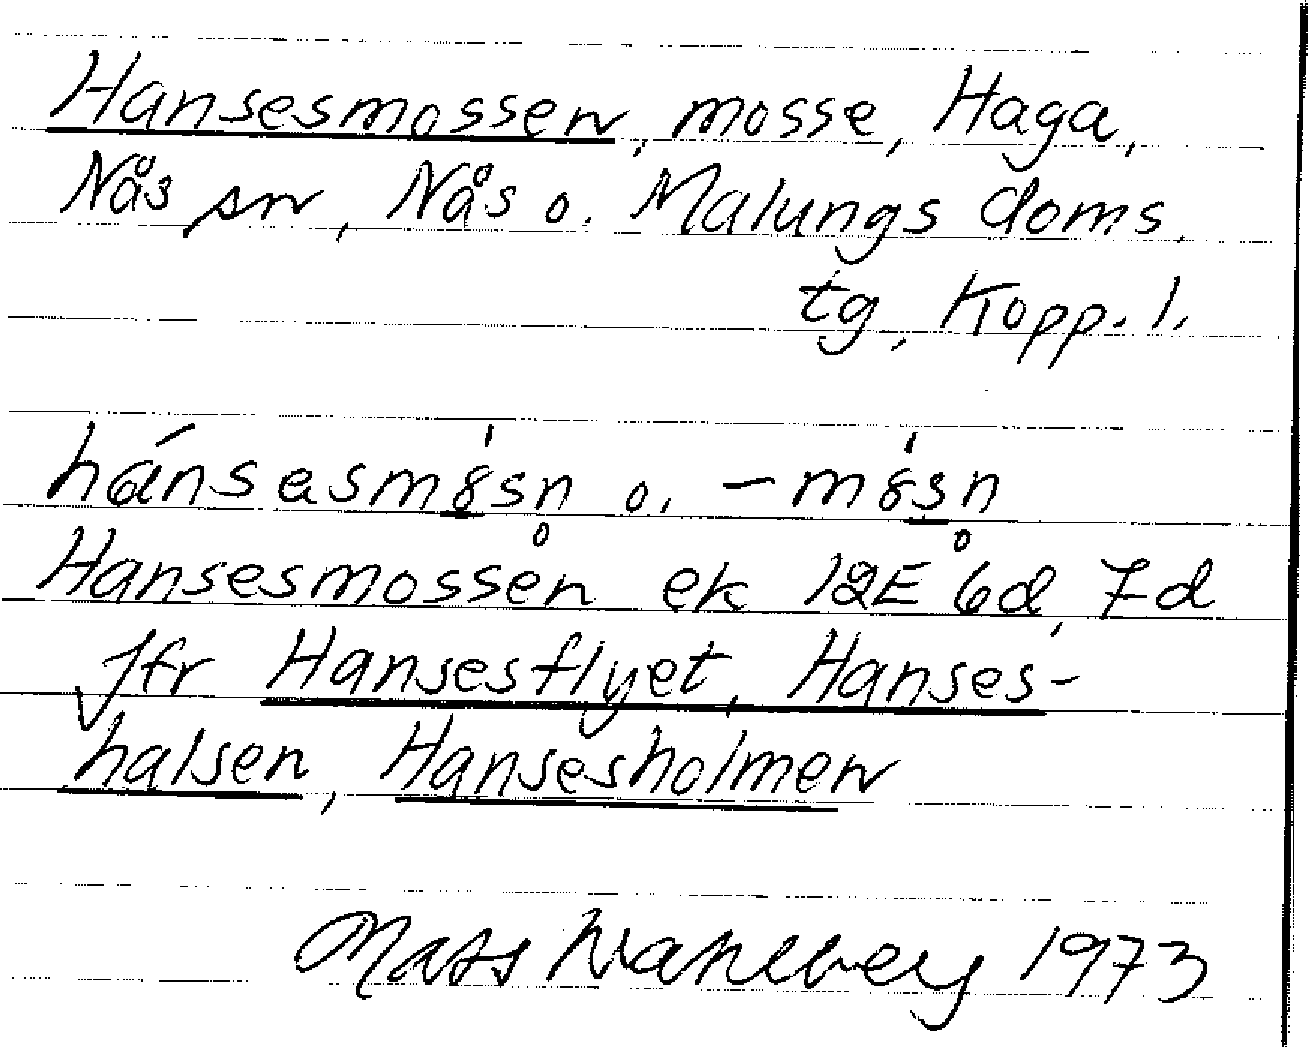 Hansesmossen, mosse, Haga,
Nås sn, Nås o. Malungs doms.
tg, Kopp. l.
hánsesm8̀sn̥ o. -m8́sn̥
Hansesmossen ek 12E 6d, 7d
Jfr Hansesflyet, Hanses-
halsen, Hansesholmen
Mats Wahlberg 1973